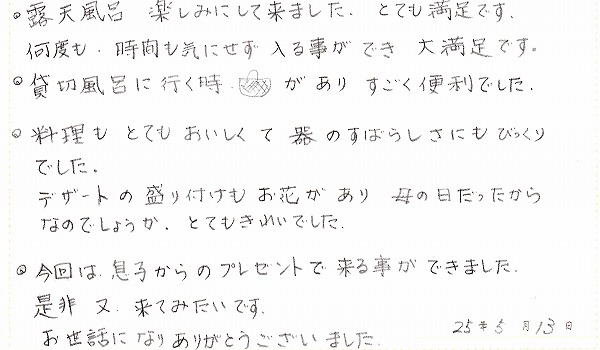 ◎露天風呂 楽しみにして来ました. とても満足です.
何度も.時間も気にせず 入る事ができ 大満足です。
◎貸切風呂に行く時. が あり すごく便利でした.
◎料理も とても おいしくて 器 のすばらしさにも びっくり
でした.
デザートの 盛り付けも お花が あり 母の日だったから
なのでしょうか. とてもきれいでした.
◎今回は.息子からのプレゼントで 来る事が できました.
是非 又. 来てみたいです.
お世話に なり ありがとうございました.
25年5月13日